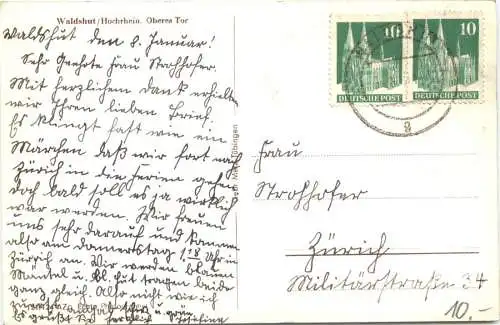 Waldshut/Hochrhein. Oberes Tor
Waldshut den 8. Januar!
Sehr Geehrte Frau Strohhofer.
Mit herzlichem dank erhielten
wir Ihren lieben Brief.
Es klingt fast wie ein
Märchen daß wir fort nach
Zürich in die Ferien gehen
doch bald soll es ja wirklich
wahr werden. Wir freuen
uns sehr darauf und kommen
also am donnerstag 1,18 Uhr in
Zürich an. Wir werden blauen
Mäntel u. bl. hut tragen beide
ganz gleich. Also nicht wie ich
Es grüßt Sie herzlich
10 10
DEUTSCHE POST DEUTSCHE POST
a
Frau
Strohhofer
Zürich
Militärstraße 34
10.-